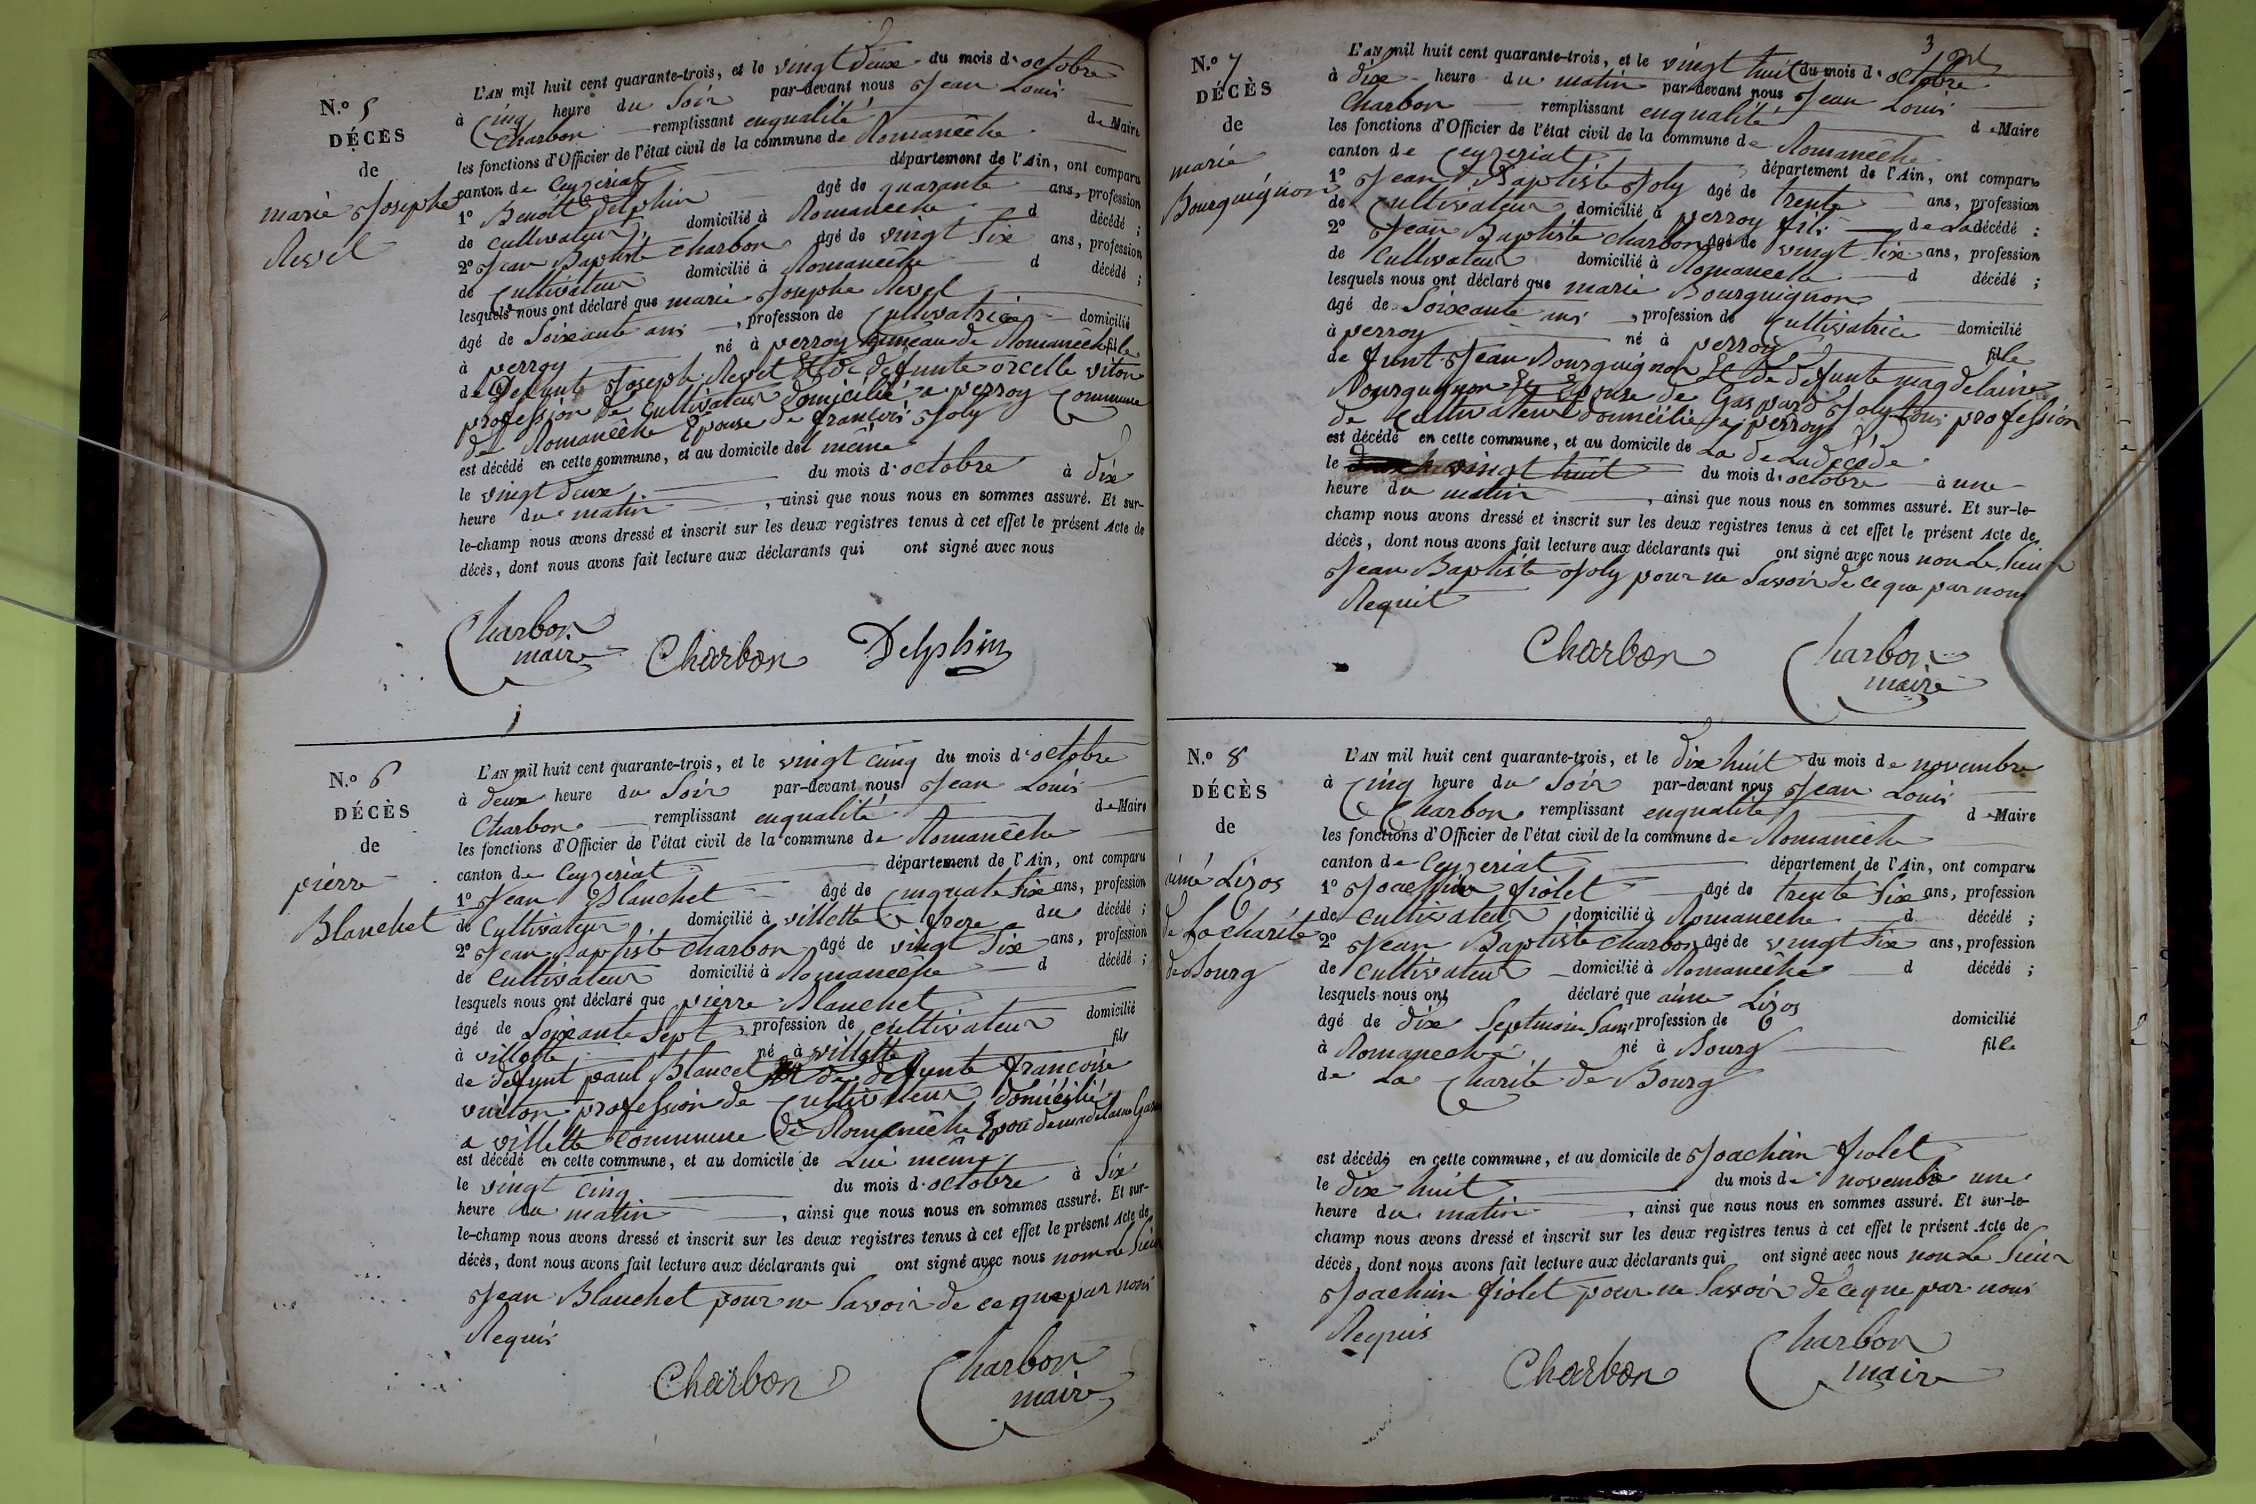 N.º 5
DÉCÈS
de
marie Josephe
Revel
L'AN mil huit cent quarante-trois, et le vingt deux du mois d'octobre
à Cinq heure du Soir par-devant nous Jean Louis
Charbon remplissant enqualité de Maire
les fonctions d'Officier de l'état civil de la commune de Romanêche
canton de Ceyzeriat département de l'Ain, ont comparu
1º Benoît Delphin âgé de quarante ans, profession
de cultivateur, domicilié à Romanêche d décédé ;
2º Jean Baptiste Charbon âgé de vingt Six ans, profession
de Cultivateur domicilié à Romanêche d décédé ;
lesquels nous ont déclaré que marie Josephe Revel
âgé de Soixante ans, profession de Cultivatrice domicilié
à perroy né à perroy hameau de Romanêche fille
de Defunte Joseph Revel Et de defunte orcelle viton
profession de Cultivateur domicilié a perroy Commune
de Romanêche Epouse de françois Joly
est décédé en cette commune, et au domicile del même
le vingt deux du mois d'octobre à dix
heure du matin, ainsi que nous nous en sommes assuré. Et sur-
le-champ nous avons dressé et inscrit sur les deux registres tenus à cet effet le présent Acte de
décès, dont nous avons fait lecture aux déclarants qui ont signé avec nous
Charbon
maire
Charbon
Delphin
N.º 6
DÉCÈS
de
pierre
Blanchet
L'AN mil huit cent quarante-trois, et le vingt cinq du mois d'octobre
à deux heure du Soir par-devant nous Jean Louis
Charbon remplissant enqualité de Maire
les fonctions d'Officier de l'état civil de la commune de Romanêche
canton de Ceyzeriat département de l'Ain, ont comparu
1º Jean Blanchet âgé de cinquate Six ans, profession
de Cultivateur domicilié à villette frere du décédé ;
2º Jean Baptiste Charbon âgé de vingt Six ans, profession
de Cultivateur domicilié à Romanêche d décédé ;
lesquels nous ont déclaré que pierre Blanchet
âgé de Soixante Sept, profession de cultivateur domicilié
à villette né à villette fils
de defunt paul Blancet Et de defunte françoise
vuiton profession de Cultivateur domicilié
a villette commune de Romanêche Epoux demadelaine
est décédé en cette commune, et au domicile de Lui même
le vingt cinq du mois d'octobre à Six
heure du matin, ainsi que nous nous en sommes assuré. Et sur-
le-champ nous avons dressé et inscrit sur les deux registres tenus à cet effet le présent Acte de
décès, dont nous avons fait lecture aux déclarants qui ont signé avec nous non le Sieur
Jean Blanchet pour ne Savoir de ce que par nous
Requis
Charbon
Charbon
maire
3
N.º 7
DÉCÈS
de
marie
Bourguignon
L'AN mil huit cent quarante-trois, et le vingt huit du mois d'octobre
à dix heure du matin par-devant nous Jean Louis
Charbon remplissant enqualité de Maire
les fonctions d'Officier de l'état civil de la commune de Romanêche
canton de Ceyzeriat département de l'Ain, ont comparu
1º Jean Baptiste Joly âgé de trente ans, profession
de Cultivateur domicilié à perroy fils de la décédé ;
2º Jean Baptiste Charbon âgé de vingt Six ans, profession
de Cultivateur domicilié à Romanêche d décédé ;
lesquels nous ont déclaré que marie Bourguignon
âgé de Soixante ans, profession de Cultivatrice domicilié
à perroy né à perroy fille
de funt Jean Bourguignon Et de defunte magdelaine
Bourguignon Et Epouse de Gaspard Joly tous profession
de Cultivateur domicilié a perroy
est décédé en cette commune, et au domicile de La de Ladécédé
le vingt huit du mois d'octobre à une
heure du matin, ainsi que nous nous en sommes assuré. Et sur-le-
champ nous avons dressé et inscrit sur les deux registres tenus à cet effet le présent Acte de
décès, dont nous avons fait lecture aux déclarants qui ont signé avec nous non Le Sieur
Jean Baptiste Joly pour ne Savoir de ce que par nous
Requit
Charbon
Charbon
maire
N.º 8
DÉCÈS
de
aimé Lizos
de La charité
de Bourg
L'AN mil huit cent quarante-trois, et le dix huit du mois de novembre
à Cinq heure du Soir par-devant nous Jean Louis
Charbon remplissant enqualité de Maire
les fonctions d'Officier de l'état civil de la commune de Romanêche
canton de Ceyzeriat département de l'Ain, ont comparu
1º Joachin fiolet âgé de trente Six ans, profession
de cultivateur domicilié à Romaneche d décédé ;
2º Jean Baptiste Charbon âgé de vingt Six ans, profession
de cultivateur domicilié à Romanêche d décédé ;
lesquels nous ont déclaré que aime Lizos
âgé de dix Septmois Sans profession de domicilié
à Romaneche né à Bourg fille
de La Charité de Bourg
est décédé en cette commune, et au domicile de Joachin fiolet
le dix huit du mois de novembre une
heure du matin, ainsi que nous nous en sommes assuré. Et sur-le-
champ nous avons dressé et inscrit sur les deux registres tenus à cet effet le présent Acte de
décès, dont nous avons fait lecture aux déclarants qui ont signé avec nous non Le Sieur
Joachin fiolet pour ne Savoir de ce que par nous
Requis
Charbon
Charbon
maire